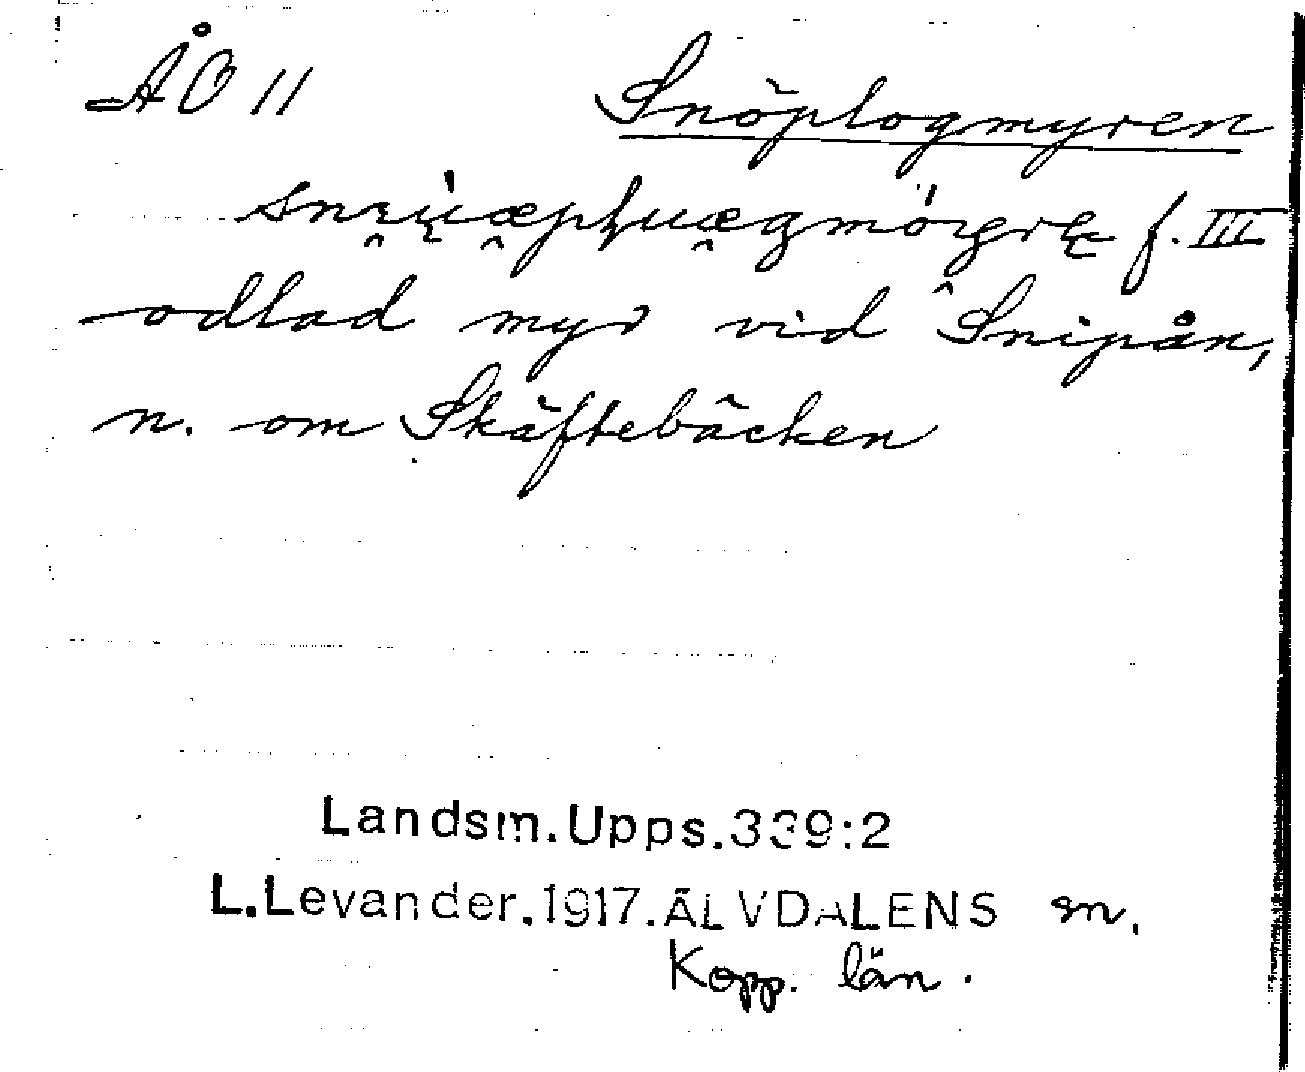 ÅÖ 11 Snöplogmyren
f. III
odlad myr vid Snipån,
n. om Skäftebäcken
Landsm. Upps. 339:2
L. Levander. 1917. ÄLVDALENS sn.
Kopp. län.